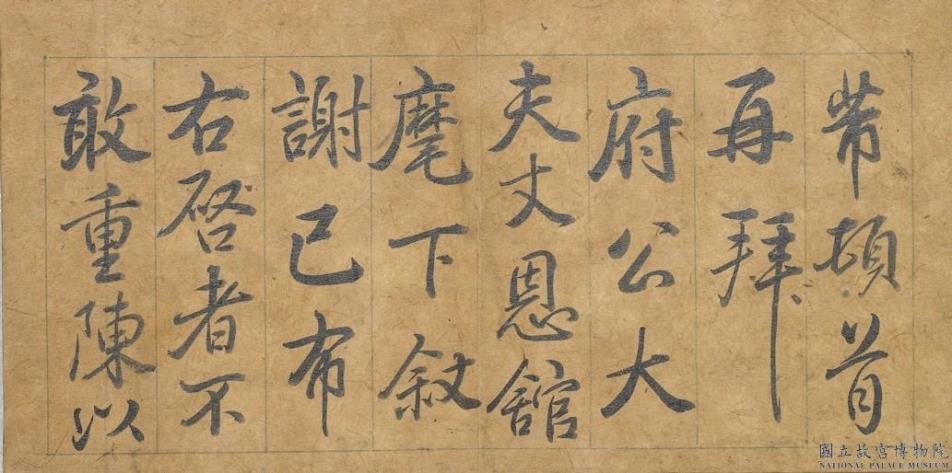 芾頓首
再拜
府公大
夫丈恩舘
麾下敘
謝已布
右啓者不
敢重陳以
國立故宮博物院
NATIONAL PALACE MUSEUM